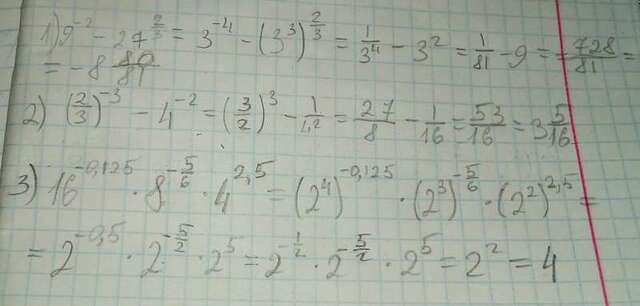 1) 9^-2 - 27^(2/3) = 3^-4 - (3^3)^(2/3) = 1/3^4 - 3^2 = 1/81 - 9 = -728/81 =
= -8 80/81
2) (2/3)^-3 - 4^-2 = (3/2)^3 - 1/4^2 = 27/8 - 1/16 = 53/16 = 3 5/16
3) 16^-0,125 · 8^(-5/6) · 4^2,5 = (2^4)^-0,125 · (2^3)^(-5/6) · (2^2)^2,5 =
= 2^-0,5 · 2^(-5/2) · 2^5 = 2^(-1/2) · 2^(-5/2) · 2^5 = 2^2 = 4